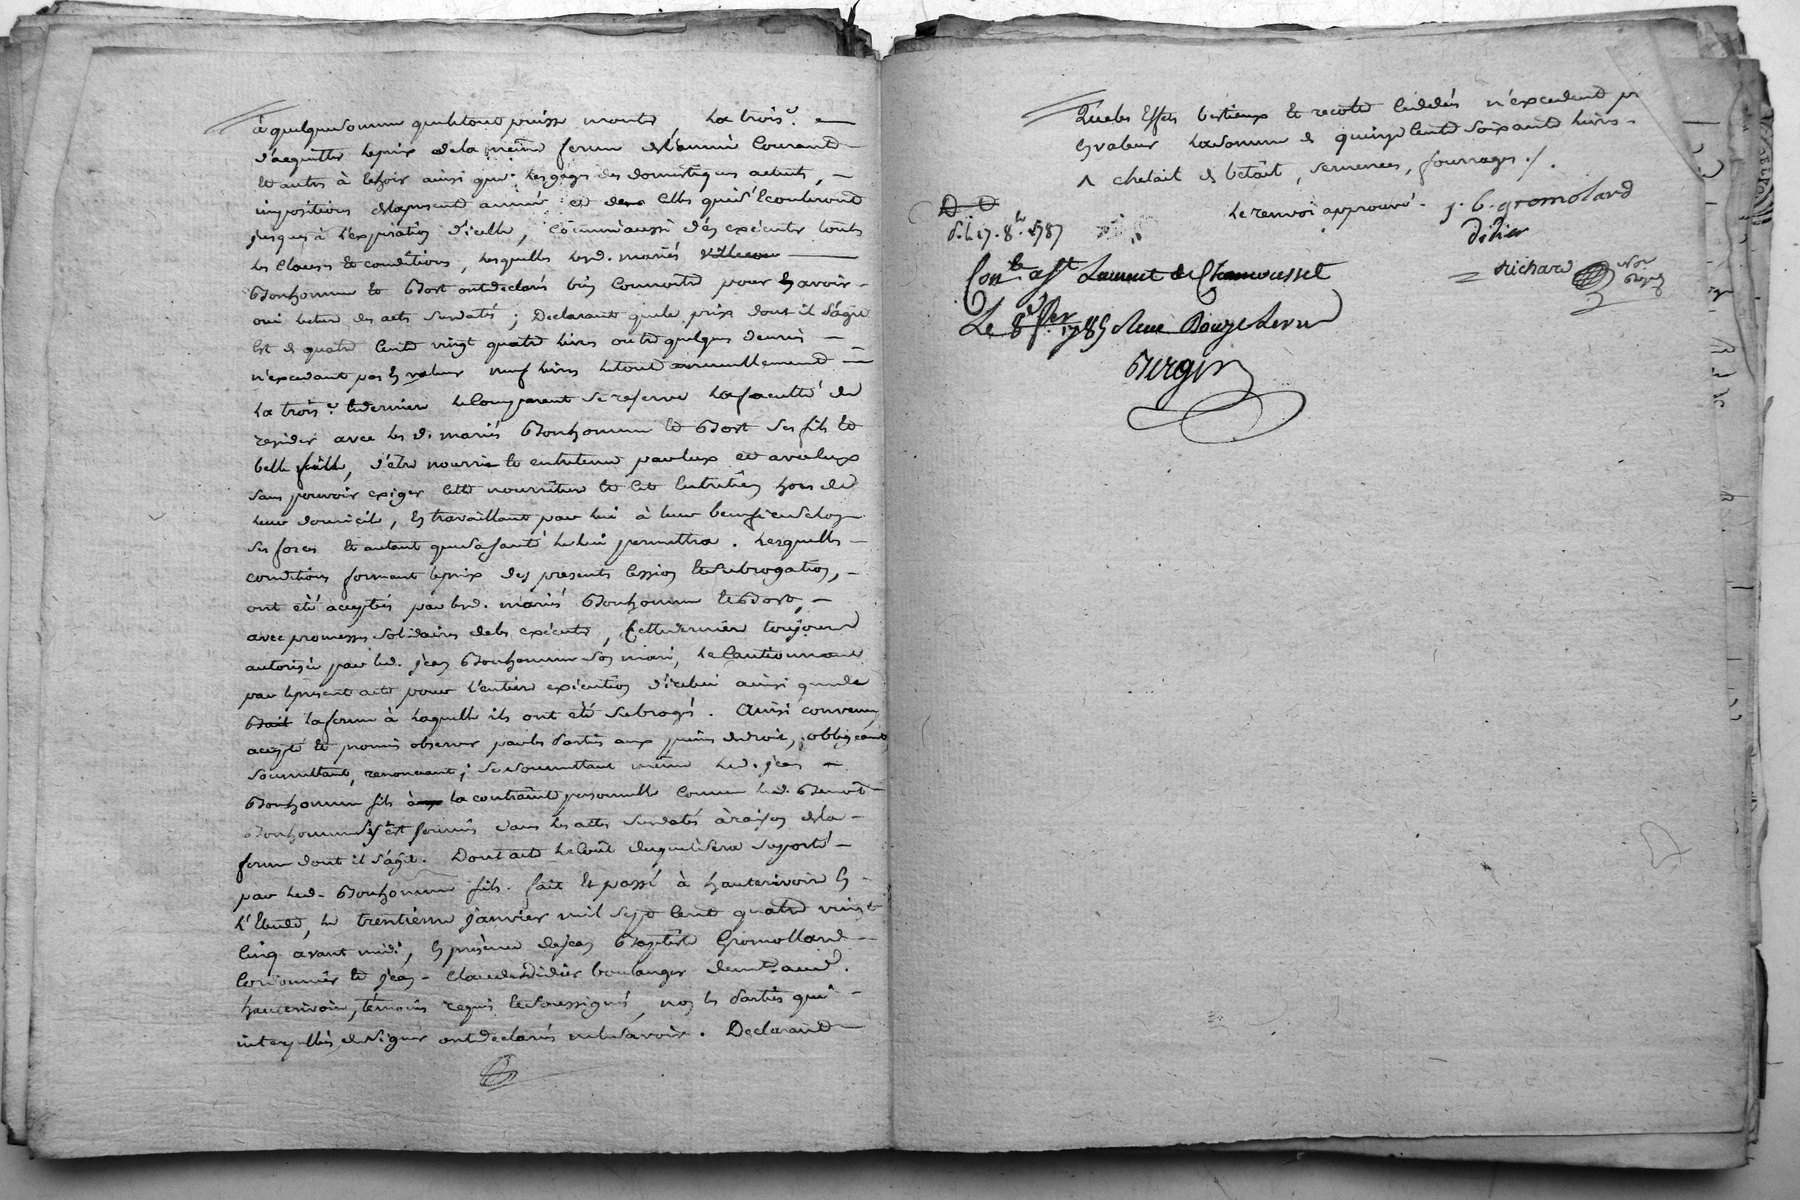 à quelque somme que le tout puisse monter La trois.e
d'acquitter le prix de la meme ferme de l'année Courante
et autres à Echoir ainsi que les gages des domestiques actuels,
impositions de la presente année et de Celles qui s'Ecouleront
jusques à l'expiration d'icelle, Comme aussi d'en exécuter toutes
les Clauses et conditions, lesquelles lesd. mariés
Bonhomme et Bort ont declarés bien Connoitre pour En avoir
oui lecture des actes Susdatés; Declarant que le prix dont il s'agit
Est de quatre Cents vingt quatre livres outre quelques denrées
n'excedant pas En valeur neuf livres le tout annuellement
La trois.e et derniere le Comparant Se reserve la faculté de
resider avec les d. mariés Bonhomme et Bort Ses fils et
belle fille, d'être nourri et entretenu par Eux et avec Eux
Sans pouvoir exiger Cette nourriture et Cet Entretien hors de
leur domicile, En travaillant par lui à leur benefice Selon
Ses forces et autant que Sa Santé le lui permettra. Lesquelles
conditions formant le prix des presents Cession et Subrogation,
ont été acceptées par lesd. mariés Bonhomme et Bort,
avec promesses Solidaires de les exécuter, Cette derniere toujours
autorisée par led. jean Bonhomme Son mari, le Cautionnant
par le present acte pour l'entiere exécution d'icelui ainsi que de
Bail la ferme à laquelle ils ont été Subrogés. Ainsi convenu,
accepté et promis observer par les Parties aux peines de droit, obligeant,
Soumettant, renonçant; Se Soumettant meme led. jean
Bonhomme fils à la contrainte personnelle Comme led. Benoit
Bonhomme S'y est soumis dans les actes Susdatés à raison de la
ferme dont il s'agit. Dont acte le Coût duquel Sera Suporté
par led. Bonhomme fils. fait et passé à hauterivoire En
l'Etude, le trentieme janvier mil Sept Cent quatre vingt
Cinq avant midi, En présence de jean Baptiste Gromollard
Cordonnier et jean-Claude Didier boulanger demt. aud.
hauterivoire, témoins requis et Soussignés, non les Parties qui
interpellées de Signer ont declarés ne le Savoir. Declarant
Que les Effets bestiaux et recolte Cedées n'excedent pas
En valeur la Somme de quinze Cents Soixante livres
^ chetait de bétail, Semences, fourrages./.
le renvoi approuvé. j. b. gromolard
d. l. 17. 8.bre 1787
Didier
Con.lé aft Laurent de Chamousset
Richard Not. Royal
Le 8 fer 1785 Reçu Douze livres
Bergon